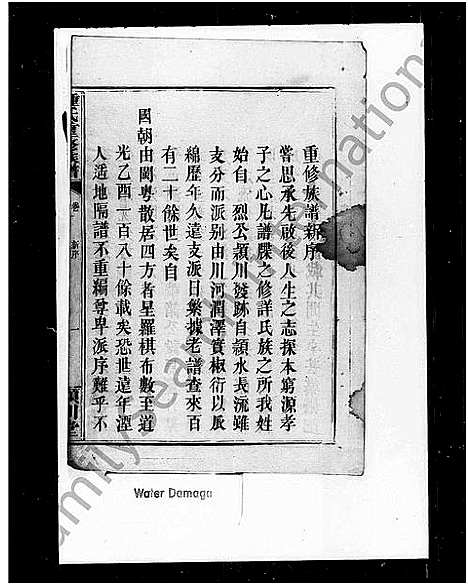 重修族譜新序
嘗思承先啟後人生之志探本窮源孝
子之心凡譜牒之修詳氏族之所我姓
始自 烈公潁川發跡自潁水長流雖
支分而派別由川河潤澤實椒衍以瓜
綿歷年久遠支派日繁據老譜查來百
有二十餘世矣自
國朝由閩粵散居四方者星羅棋布數至道
光乙酉一百八十餘載矣恐世遠年湮
人遙地隔譜不重編尊卑派序難乎不
重修族譜
卷
新序
川堂
Water Damage